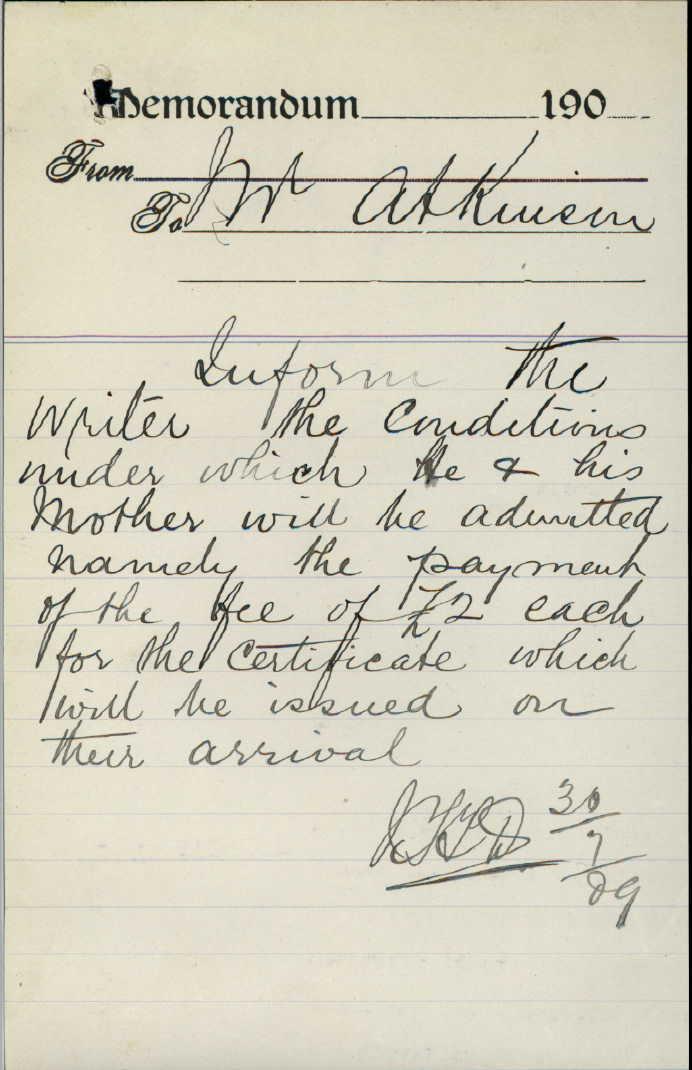 Memorandum 190
From
To Mr Atkinson
Inform the
Writer the Conditions
under which he & his
Mother will be admitted
namely the payment
of the fee of £2 each
for the certificate which
will be issued on
their arrival
30/7/09